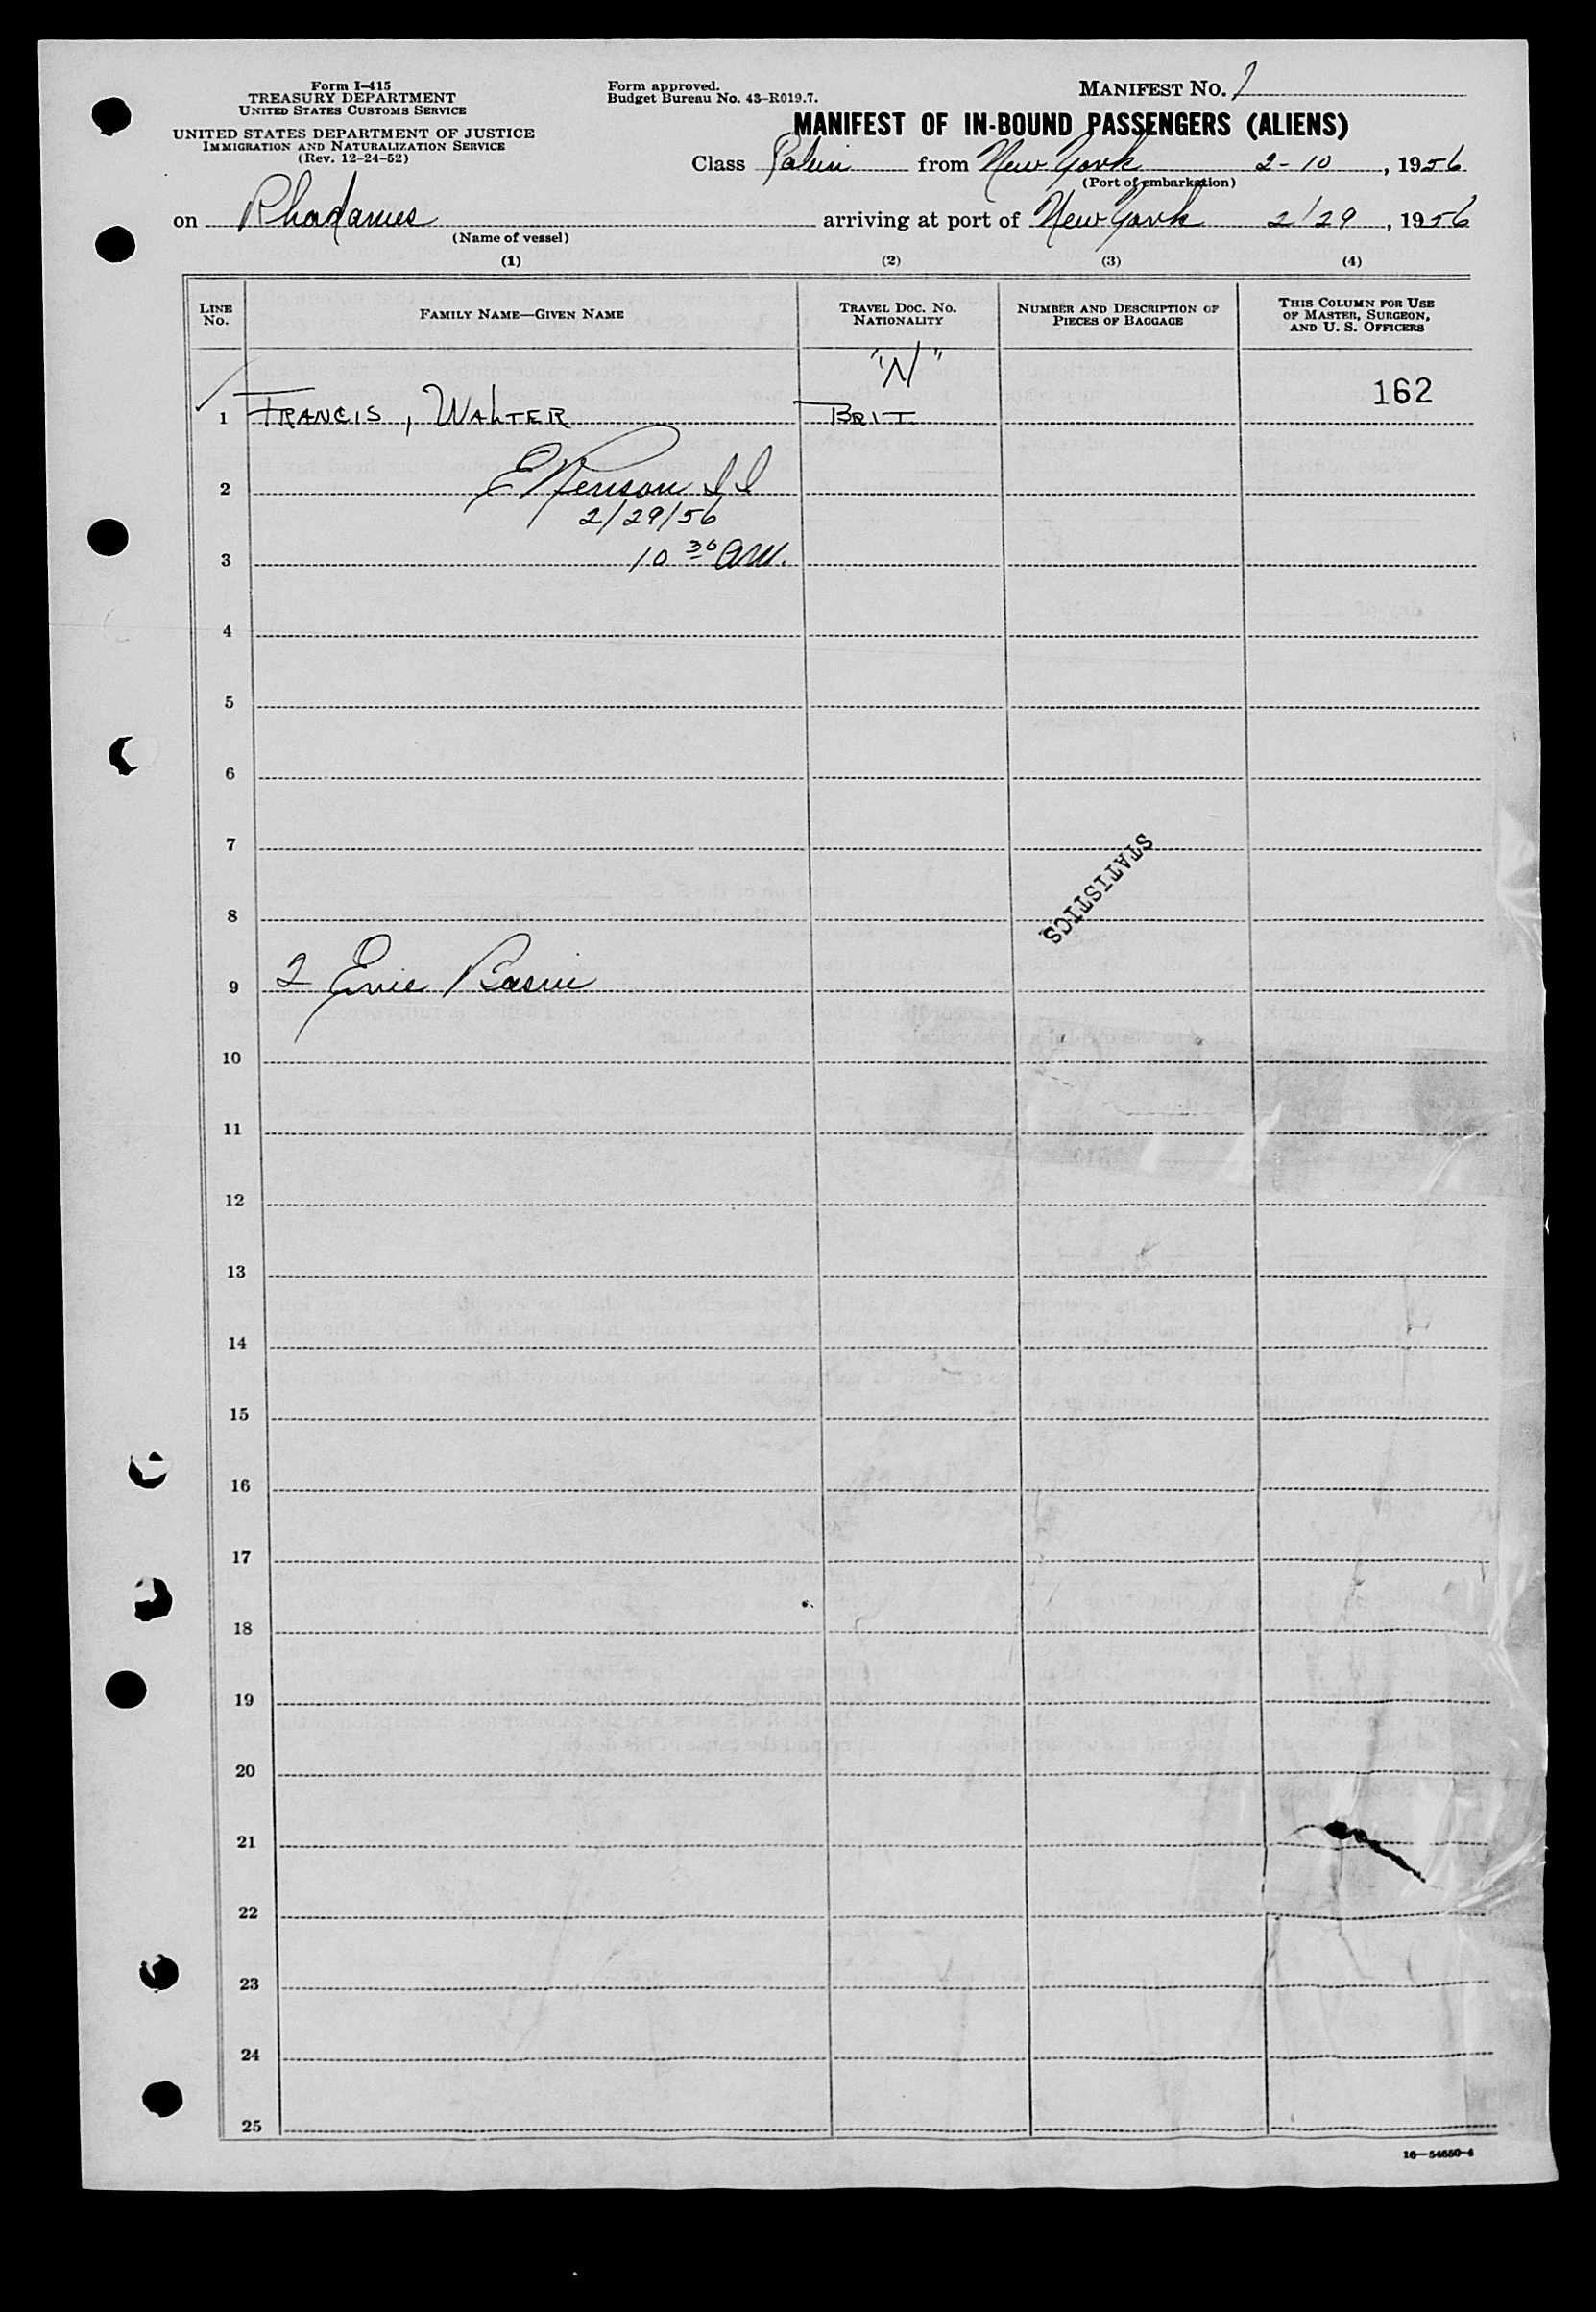 Form I-415
TREASURY DEPARTMENT
UNITED STATES CUSTOMS SERVICE
UNITED STATES DEPARTMENT OF JUSTICE
IMMIGRATION AND NATURALIZATION SERVICE
(Rev. 12-24-52)
Form approved.
Budget Bureau No. 43-R019.7.
MANIFEST NO.
MANIFEST OF IN-BOUND PASSENGERS (ALIENS)
Class from New York 2-10, 1956
(Port of embarkation)
on Rhadames arriving at port of New York 2/29, 1956
(Name of vessel)
(1) (2) (3) (4)
LINE NO. FAMILY NAME—GIVEN NAME TRAVEL DOC. NO. NATIONALITY NUMBER AND DESCRIPTION OF PIECES OF BAGGAGE THIS COLUMN FOR USE OF MASTER, SURGEON, AND U. S. OFFICERS
"N"
162
1 FRANCIS, WALTER BRIT.
2
2/29/56
3 10 30 AM.
4
5
6
7
STATISTICS
8
9 2 Erie Basin
10
11
12
13
14
15
16
17
18
19
20
21
22
23
24
25
16—54650-4